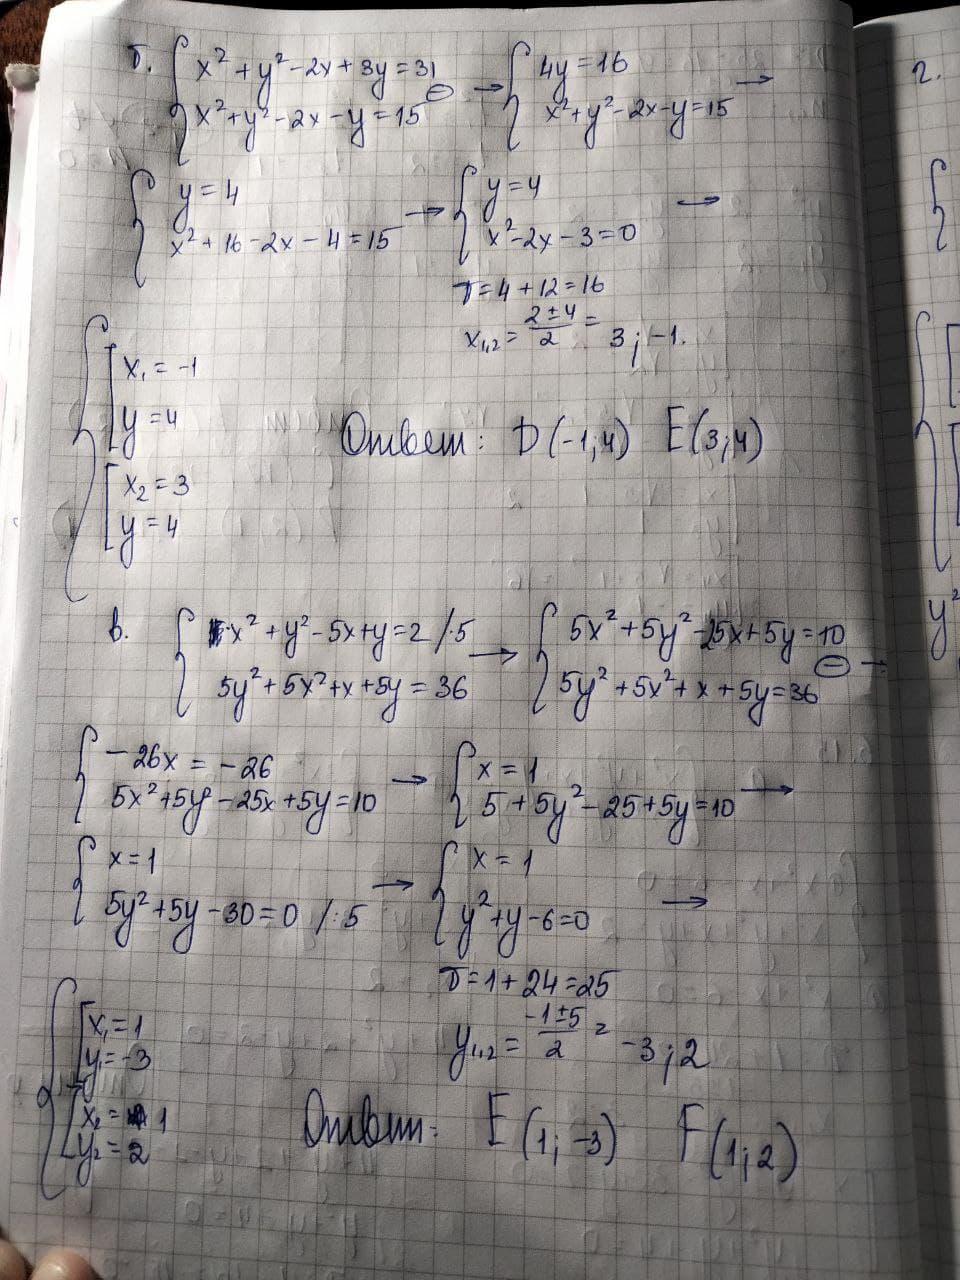 б. { x² + y² - 2x + 3y = 31 → { 4y = 16 →
x² + y² - 2x - y = 15 ⊖ x² + y² - 2x - y = 15
{ y = 4 → { y = 4 →
x² + 16 - 2x - 4 = 15 x² - 2x - 3 = 0
D = 4 + 12 = 16
x₁,₂ = (2 ± 4)/2 = 3; -1.
{ [ x₁ = -1
y = 4
Ответ: D (-1; 4) E (3; 4)
[ x₂ = 3
y = 4
в. { x² + y² - 5x + y = 2 /·5 → { 5x² + 5y² - 25x + 5y = 10 →
5y² + 5x² + x + 5y = 36 5y² + 5x² + x + 5y = 36 ⊖
{ -26x = -26 → { x = 1 →
5x² + 5y² - 25x + 5y = 10 5 + 5y² - 25 + 5y = 10
{ x = 1 → { x = 1 →
5y² + 5y - 30 = 0 /:5 y² + y - 6 = 0
D = 1 + 24 = 25
y₁,₂ = (-1 ± 5)/2 = -3; 2
{ [ x₁ = 1
y₁ = -3
[ x₂ = 1
y₂ = 2
Ответ: E (1; -3) F (1; 2)
2.
y²